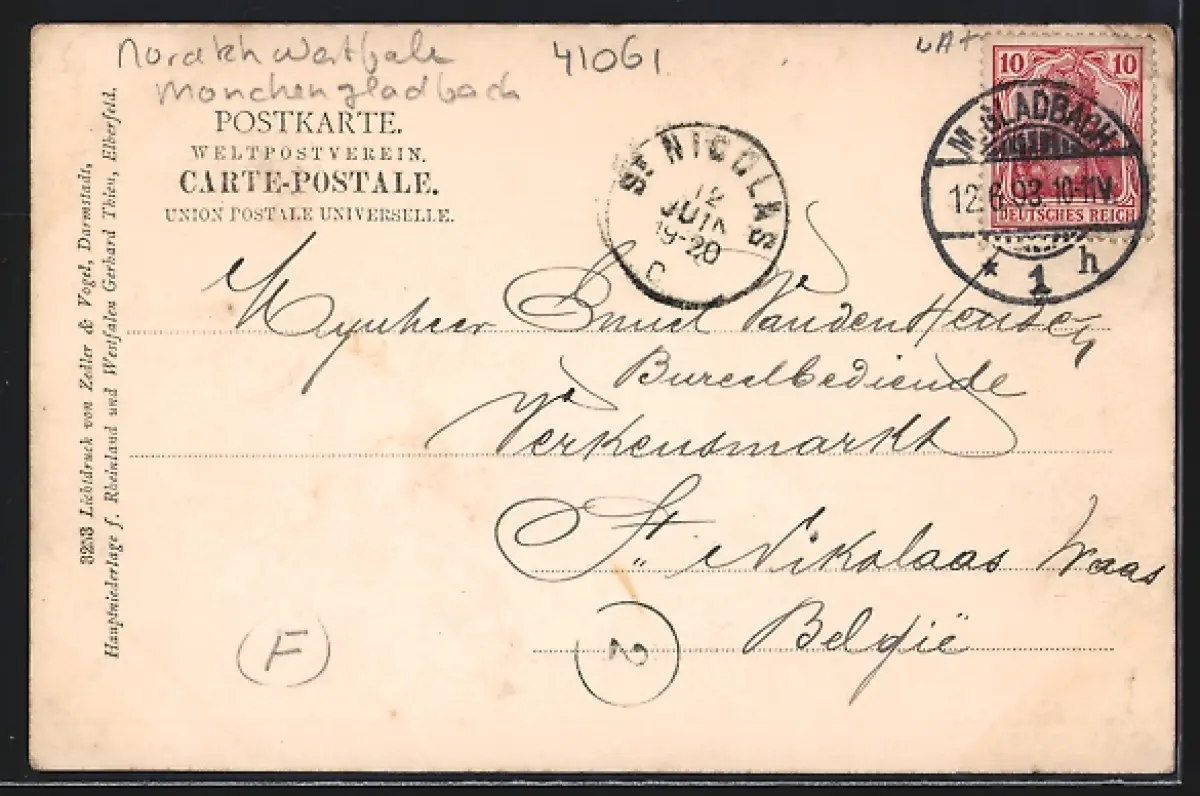 41061
POSTKARTE.
WELTPOSTVEREIN.
CARTE-POSTALE.
UNION POSTALE UNIVERSELLE.
10 10
DEUTSCHES REICH
M. GLADBACH
12.6.03.10-11V.
* 1 h
ST NICOLAS
12
JUIN
19-20
C
Mynheer Vanden
Verkensmarkt
St. Nikolaas Waas
België
F
2
3253 Lichtdruck von Zedler & Vogel, Darmstadt,
Hauptniederlage f. Rheinland und Westfalen Gerhard Thien, Elberfeld.